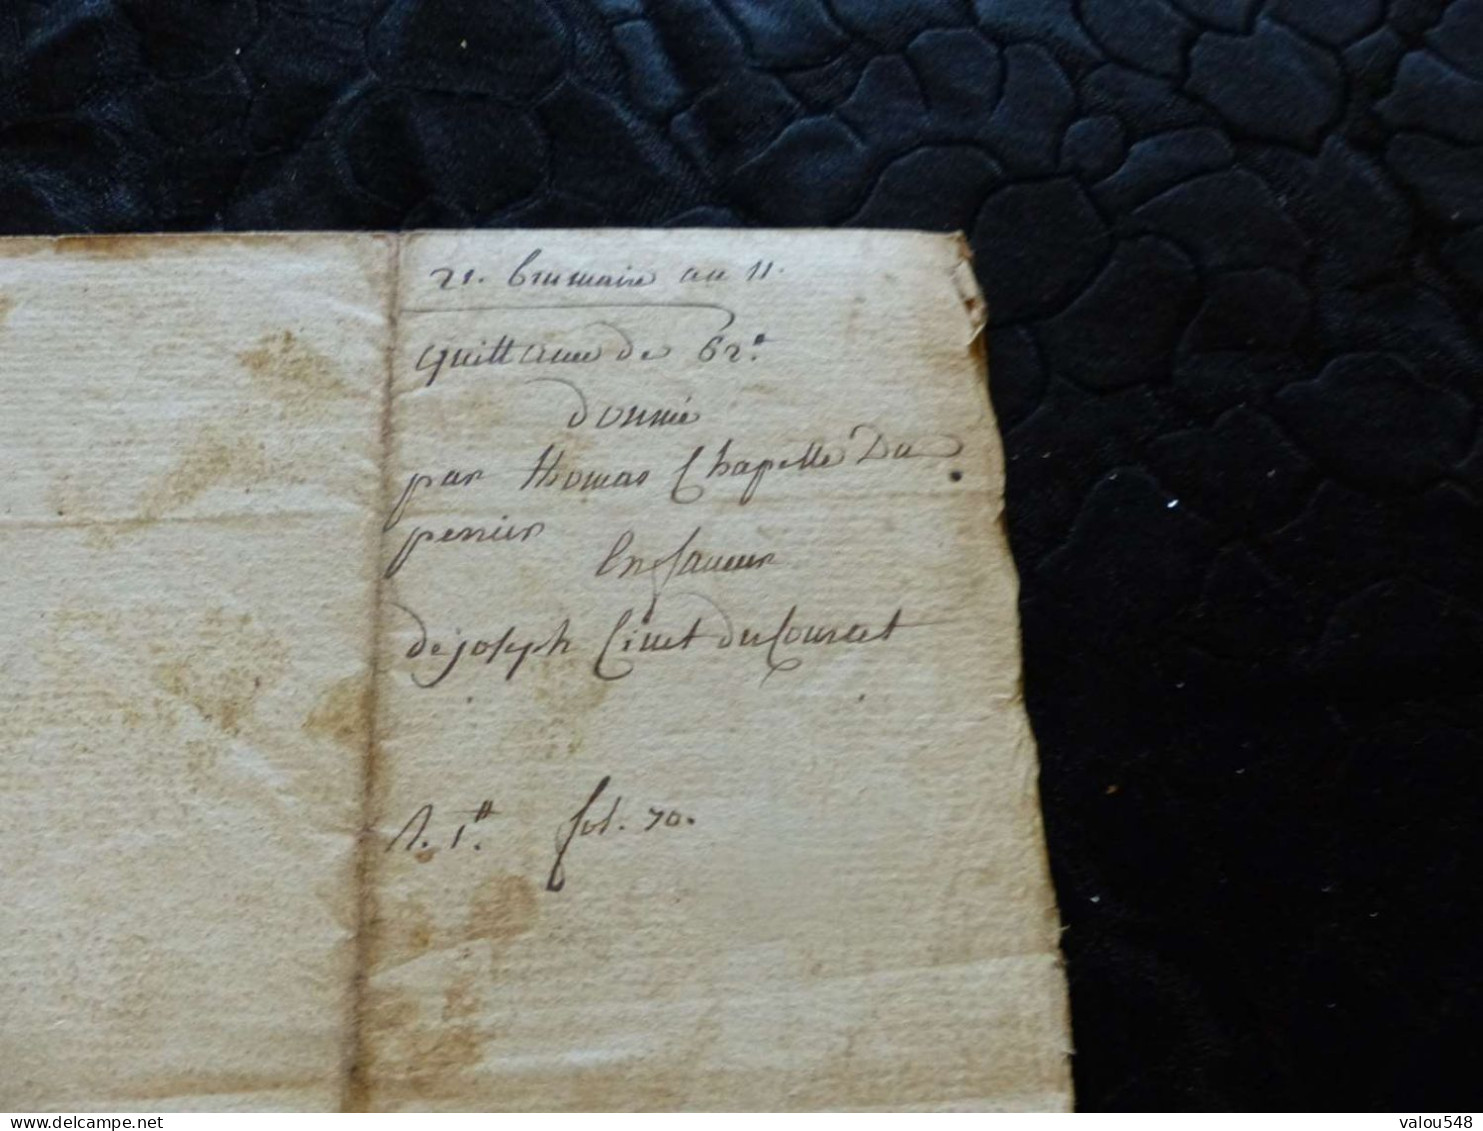 21. brumaire an 11.
quittance de 62.#
donnée
par thomas Chapelle Du
perier
En faveur
de joseph Civet du Courcet
1.# fol. 70.
valou548